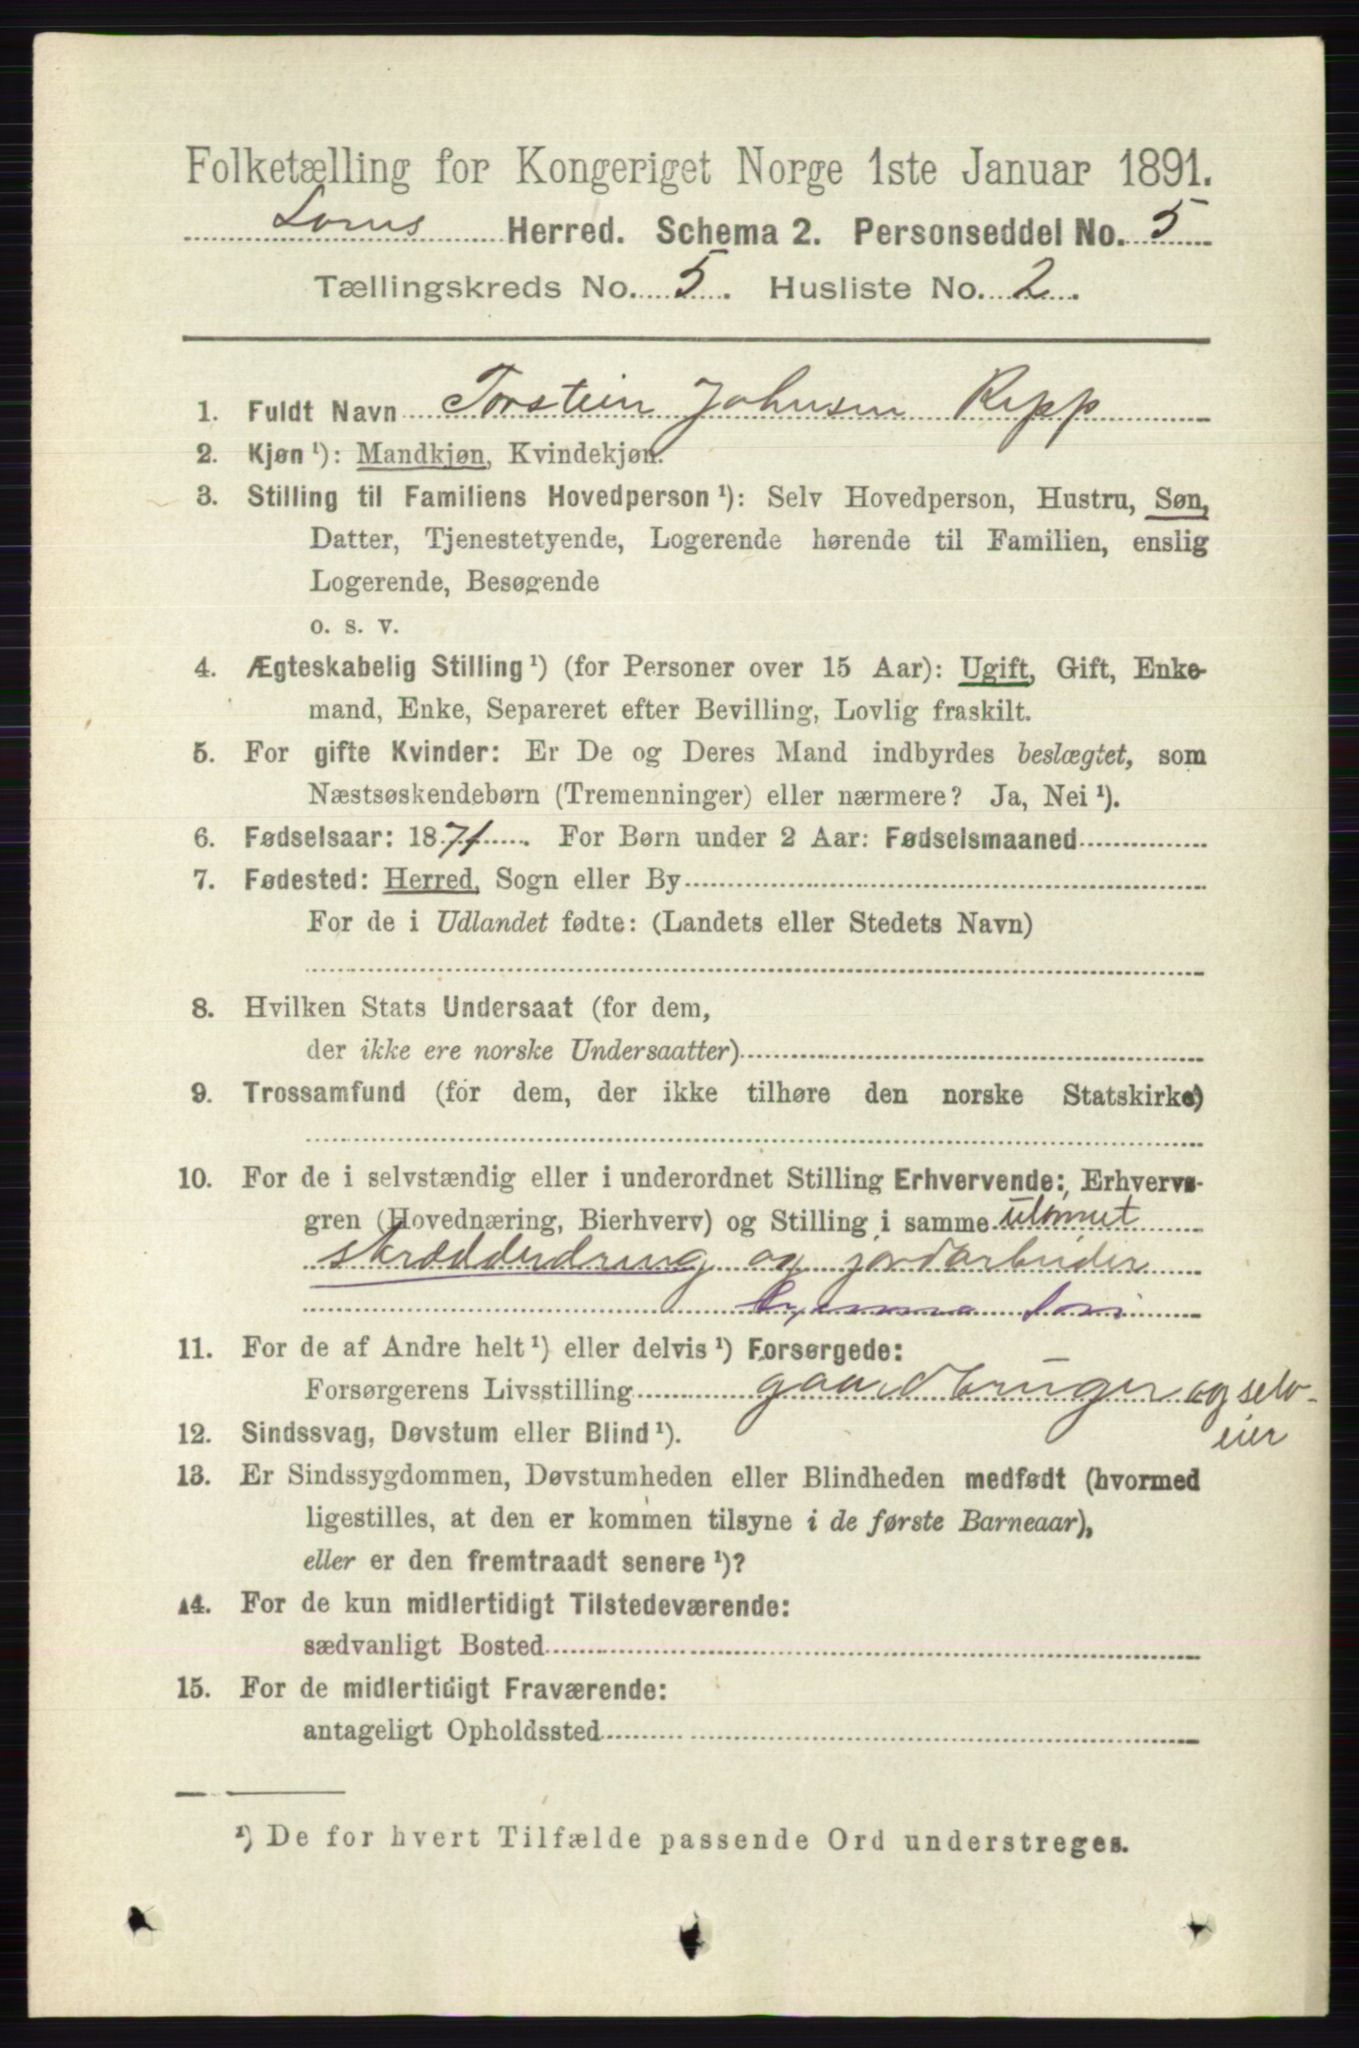 Folketælling for Kongeriget Norge 1ste Januar 1891.
Loms Herred. Schema 2. Personseddel No. 5
Tællingskreds No. 5. Husliste No. 2.
1. Fuldt Navn Torstein Johnsen Repp
2. Kjøn ¹): Mandkjøn, Kvindekjøn.
3. Stilling til Familiens Hovedperson ¹): Selv Hovedperson, Hustru, Søn,
Datter, Tjenestetyende, Logerende hørende til Familien, enslig
Logerende, Besøgende
o. s. v.
4. Ægteskabelig Stilling ¹) (for Personer over 15 Aar): Ugift, Gift, Enke-
mand, Enke, Separeret efter Bevilling, Lovlig fraskilt.
5. For gifte Kvinder: Er De og Deres Mand indbyrdes beslægtet, som
Næstsøskendebørn (Tremenninger) eller nærmere? Ja, Nei ¹).
6. Fødselsaar: 1871. For Børn under 2 Aar: Fødselsmaaned
7. Fødested: Herred, Sogn eller By
For de i Udlandet fødte: (Landets eller Stedets Navn)
8. Hvilken Stats Undersaat (for dem,
der ikke ere norske Undersaatter)
9. Trossamfund (for dem, der ikke tilhøre den norske Statskirke)
10. For de i selvstændig eller i underordnet Stilling Erhvervende: Erhvervs-
gren (Hovednæring, Bierhverv) og Stilling i samme ulønnet
skrædderdreng og jordarbeider
hjemme
11. For de af Andre helt ¹) eller delvis ¹) Forsørgede:
Forsørgerens Livsstilling gaardbruger og selv-
eier
12. Sindssvag, Døvstum eller Blind ¹).
13. Er Sindssygdommen, Døvstumheden eller Blindheden medfødt (hvormed
ligestilles, at den er kommen tilsyne i de første Barneaar),
eller er den fremtraadt senere ¹)?
14. For de kun midlertidigt Tilstedeværende:
sædvanligt Bosted
15. For de midlertidigt Fraværende:
antageligt Opholdssted
¹) De for hvert Tilfælde passende Ord understreges.